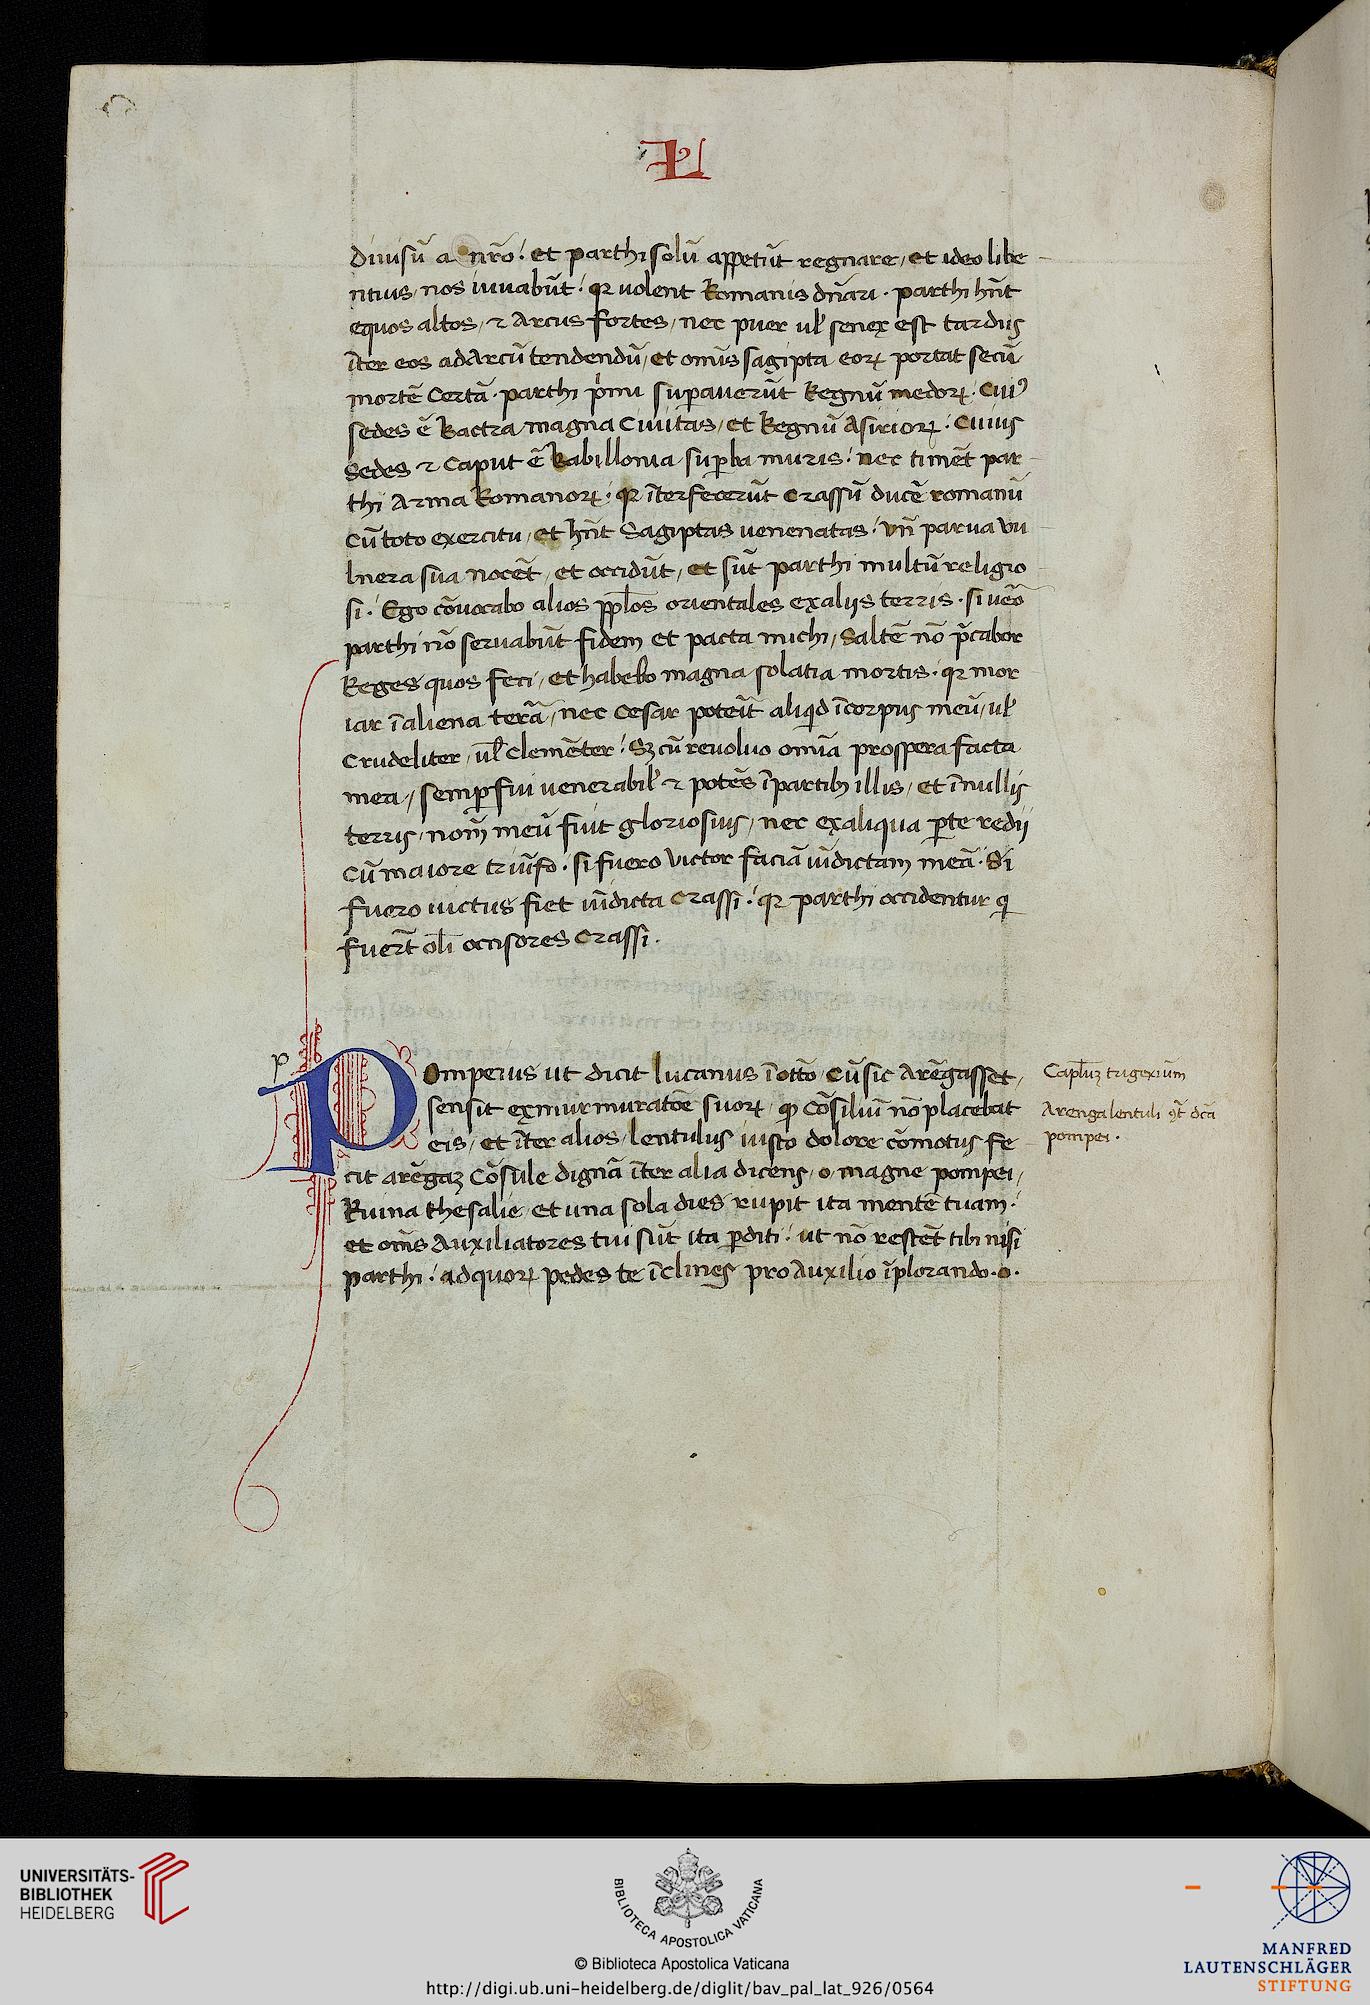 L
diuisū a nr̄o ⁊ et parthi solū appetūt regnare, et ideo libe
ntius, nos iuuabūt ⁊ qꝛ uolent Romanis dn̄ari · parthi hn̄t
equos altos, ⁊ Arcus fortes, nec puer uľ senex est tardus
īter eos ad Arcū tendendū, et omīs sagipta eoꝝ portat secū
mortē Certā · parthi pⁱmi suꝑauerūt Regnū medoꝝ · Cuiꝰ
sedes ē Bactra magna Ciuitas, et Regnū Asirioꝝ · Cuius
Sedes ⁊ Caput ē Babillonia suꝑba muris ⁊ nec timēt par
thi Arma Romanoꝝ · qꝛ īterfecerūt Crassū ducē romanū
Cū toto exercitu, et hn̄t Sagiptas uenenatas ⁊ Vn̄ parua vu
lnera sua nocēt, et occidūt, et sūt parthi multū religio
si · Ego cōuocabo alios ppl̄os orientales ex alijs terris · si ueō
parthi nō seruabūt fidem et pacta michi, Saltē nō p̄cabor
Reges quos feci, et habebo magna solatia mortis · qꝛ mor
iar ī aliena terā, nec Cesar poteīt aliqⁱd ī corpus meū, uľ
Crudeliter, uľ Clemēter ⁊ Sꝫ cū reuoluo omīa prospera facta
mea, semꝑ fui uenerabil̓ ⁊ potēs ī partibꝫ illis, et ī nullis
terris, nom̄ meū fuit gloriosius, nec ex aliqua ꝑte redij
Cū maiore triūfo · si fuero victor faciā uīdictam meā · Si
fuero uictus fiet uīdicta Crassi ⁊ qꝛ parthi occidentur qⁱ
fuert̄ oli̅ occisores Crassi ·
p
Pompeius ut dicit lucanus ī otto, Cū sic Arēgasset,
sensit ex murmuratōe suoꝝ, ꝙ Cōsiliū nō placebat
eis, et īter alios, lentulus iusto dolore cōmotus fe
cit arēgaꝫ Cōsule dignā īter alia dicens, o magne pompei,
Ruina thesalie, et una sola dies rupit ita mentē tuam ⁊
et omīs Auxiliatores tui sūt ita ꝑditi ⁊ ut nō restēt tibi nisi
parthi ⁊ ad quoꝝ pedes te īclines pro Auxilio īplorando · o ·
Arenga lentuli ꝯt̄ dc̄a
pompei ·
UNIVERSITÄTS-
BIBLIOTHEK
HEIDELBERG
BIBLIOTECA APOSTOLICA VATICANA
© Biblioteca Apostolica Vaticana
http://digi.ub.uni-heidelberg.de/diglit/bav_pal_lat_926/0564
MANFRED
LAUTENSCHLÄGER
STIFTUNG